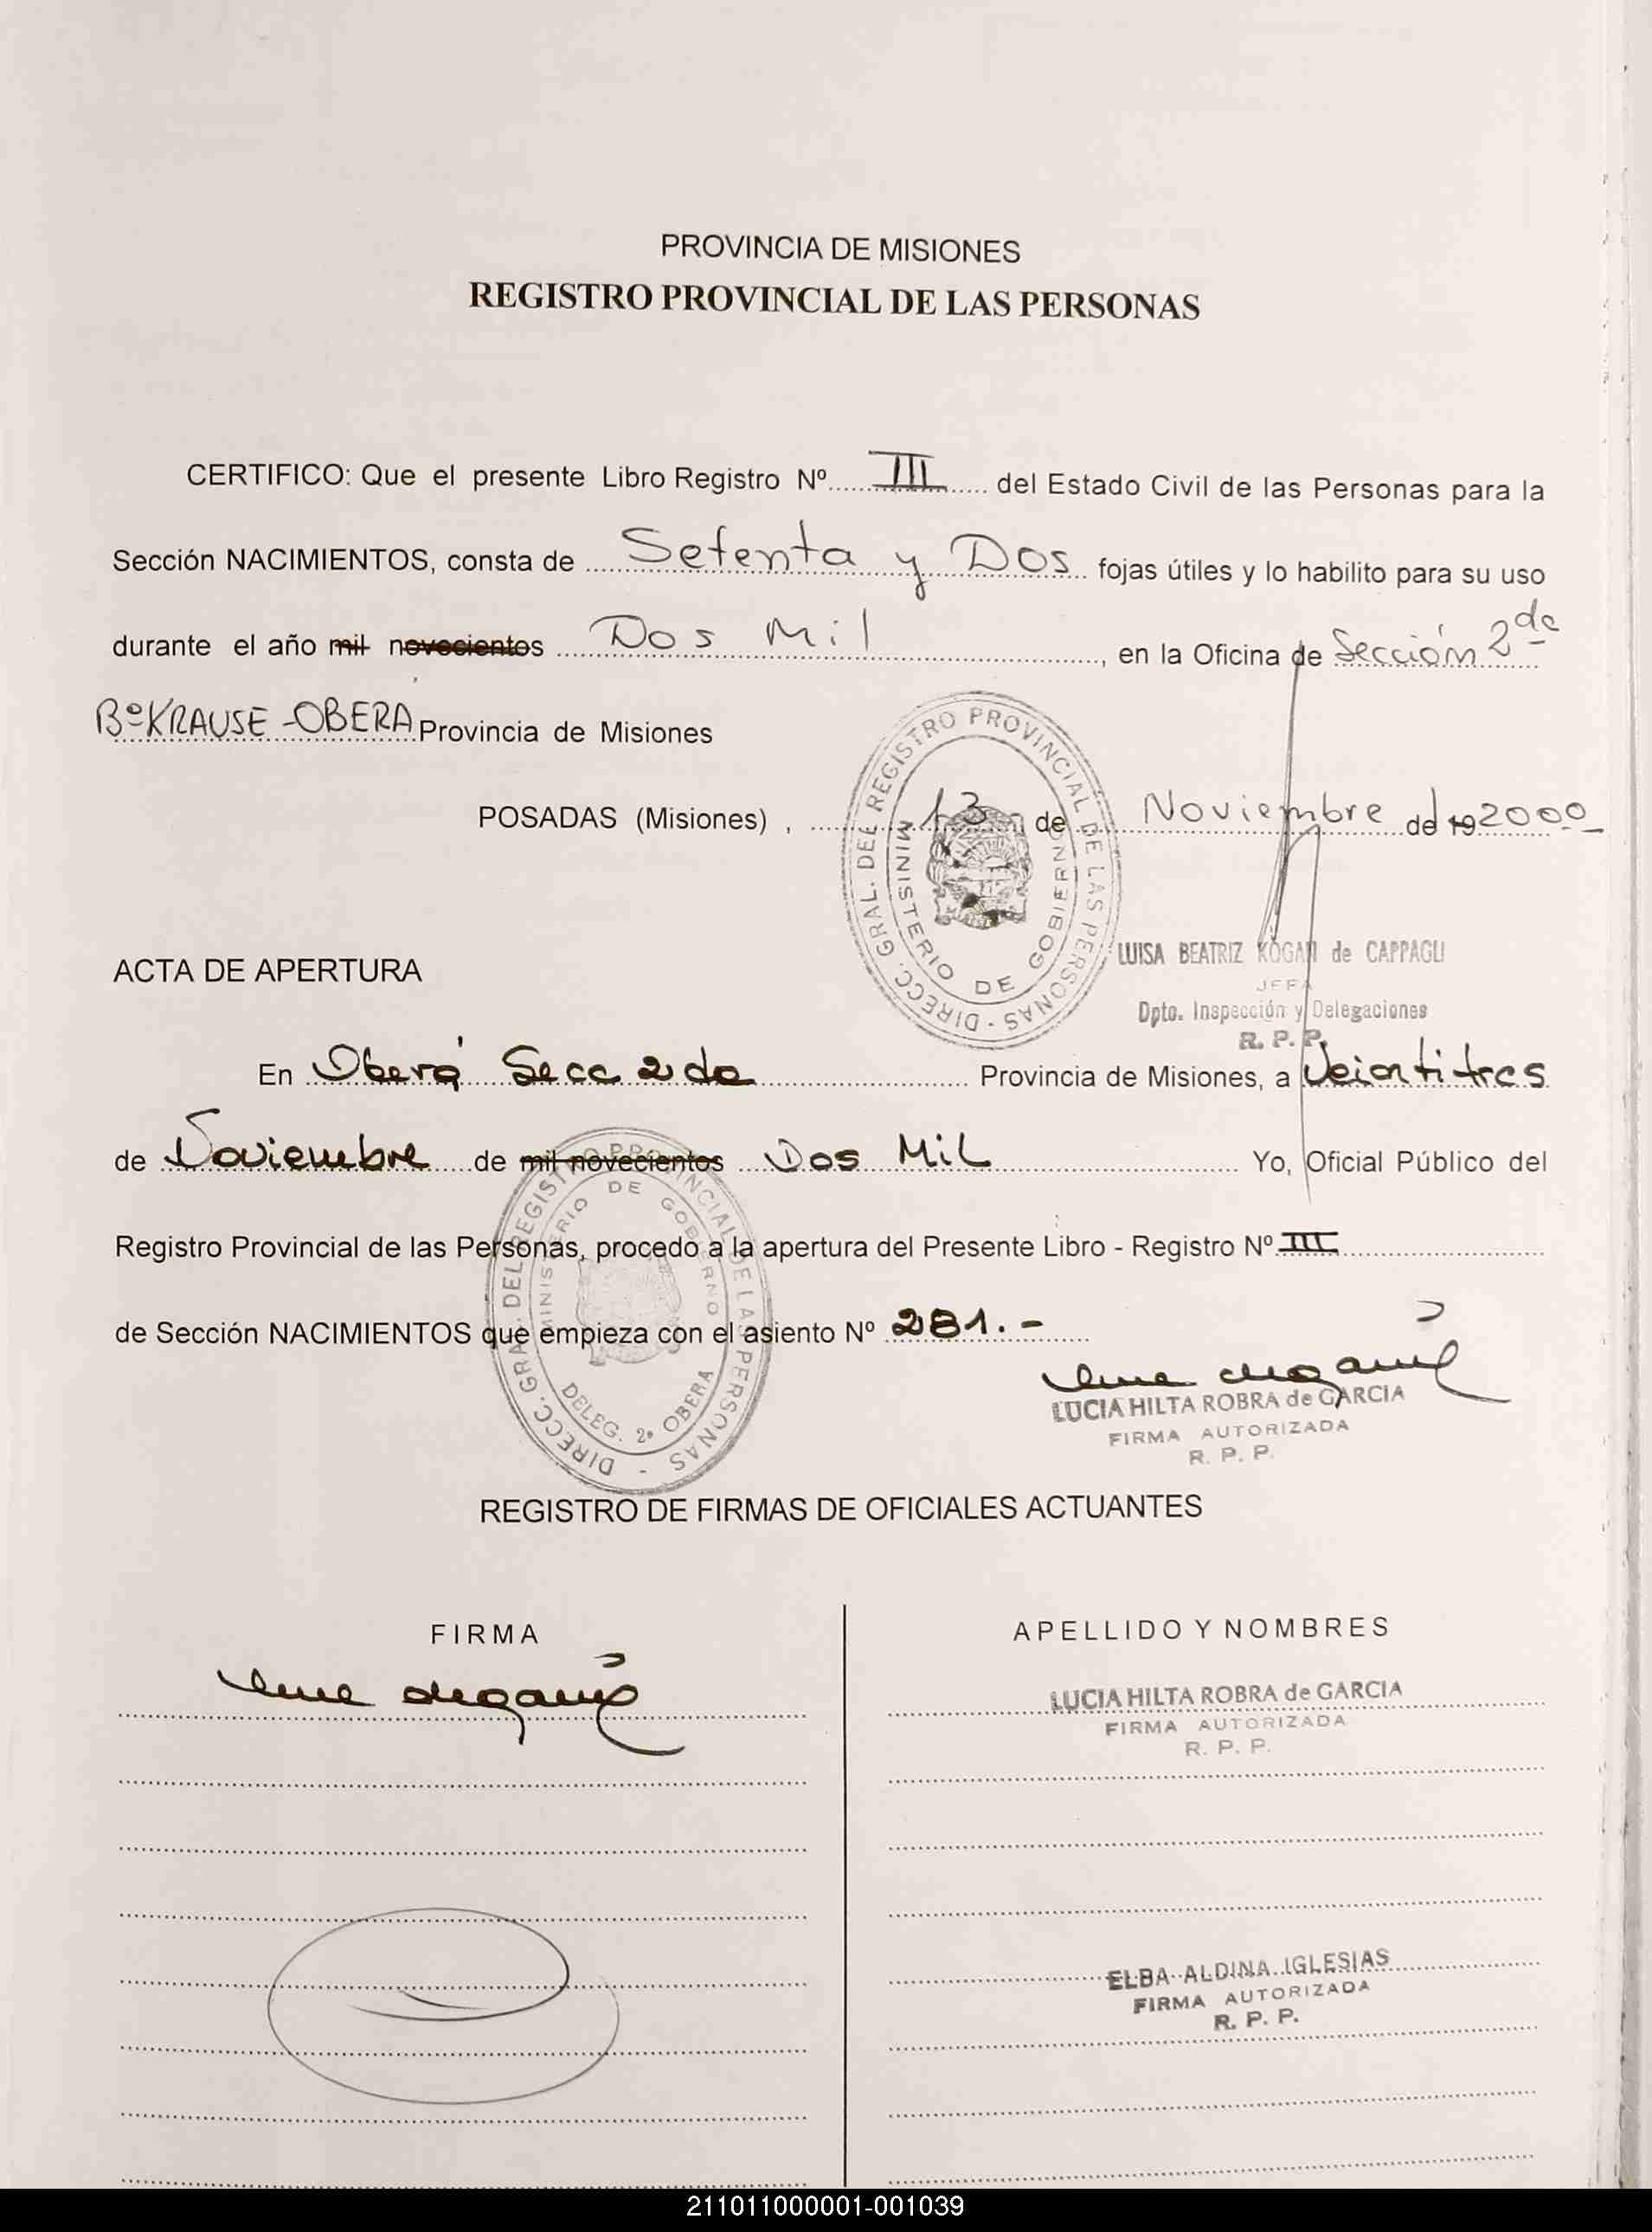 PROVINCIA DE MISIONES
REGISTRO PROVINCIAL DE LAS PERSONAS
CERTIFICO: Que el presente Libro Registro Nº III del Estado Civil de las Personas para la
Sección NACIMIENTOS, consta de Setenta y Dos fojas útiles y lo habilito para su uso
durante el año mil novecientos Dos Mil, en la Oficina de Sección 2da
Bº KRAUSE - OBERA Provincia de Misiones
POSADAS (Misiones), 13 de Noviembre de 19 2000
DIRECC. GRAL. DEL REGISTRO PROVINCIAL DE LAS PERSONAS -
MINISTERIO DE GOBIERNO
LUISA BEATRIZ KOGAN de CAPPAGLI
JEFA
Dpto. Inspección y Delegaciones
R. P. P.
ACTA DE APERTURA
En Oberá Secc 2da Provincia de Misiones, a Veintitres
de Noviembre de mil novecientos Dos Mil Yo, Oficial Público del
Registro Provincial de las Personas, procedo a la apertura del Presente Libro - Registro Nº III
de Sección NACIMIENTOS que empieza con el asiento Nº 281.-
DIRECC. GRAL. DEL REGISTRO PROVINCIAL DE LAS PERSONAS -
MINISTERIO DE GOBIERNO
DELEG. 2º OBERA
LUCIA HILTA ROBRA de GARCIA
FIRMA AUTORIZADA
R. P. P.
REGISTRO DE FIRMAS DE OFICIALES ACTUANTES
FIRMA
APELLIDO Y NOMBRES
LUCIA HILTA ROBRA de GARCIA
FIRMA AUTORIZADA
R. P. P.
ELBA ALDINA IGLESIAS
FIRMA AUTORIZADA
R. P. P.
211011000001-001039